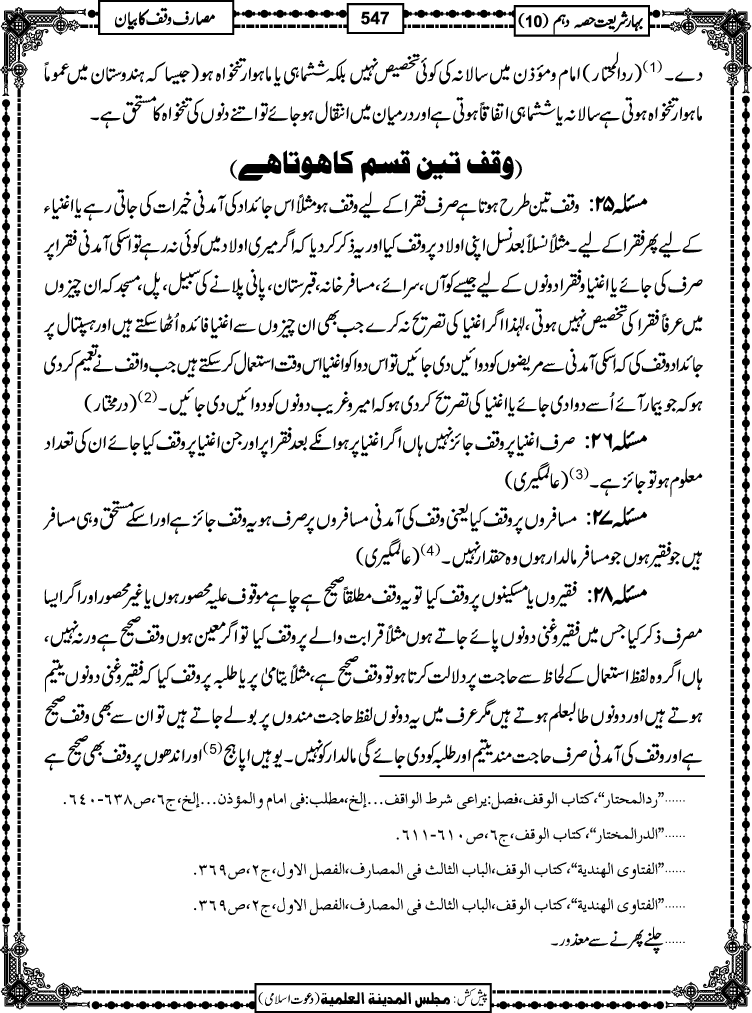 بہارِشریعت حصہ دہم (10)
547
مصارف وقف کا بیان
دے۔(1) (ردالمحتار) امام ومؤذن میں سالانہ کی کوئی تخصیص نہیں بلکہ ششماہی یا ماہوار تنخواہ ہو (جیسا کہ ہندوستان میں عموماً
ماہوار تنخواہ ہوتی ہے سالانہ یا ششماہی اتفاقاً ہوتی ہے اور درمیان میں انتقال ہو جائے تو اتنے دنوں کی تنخواہ کا مستحق ہے۔
(وقف تین قسم کا ھوتاھے)
مسئلہ ۲۵: وقف تین طرح ہوتا ہے صرف فقرا کے لیے وقف ہو مثلاً اس جائداد کی آمدنی خیرات کی جاتی رہے یا اغنیاء
کے لیے پھر فقرا کے لیے۔ مثلاً نسلاً بعد نسل اپنی اولاد پر وقف کیا اور یہ ذکر کر دیا کہ اگر میری اولاد میں کوئی نہ رہے تو اسکی آمدنی فقرا پر
صرف کی جائے یا اغنیا و فقرا دونوں کے لیے جیسے کوآں، سرائے، مسافر خانہ، قبرستان، پانی پلانے کی سبیل، پل، مسجد کہ ان چیزوں
میں عرفاً فقرا کی تخصیص نہیں ہوتی، لہٰذا اگر اغنیا کی تصریح نہ کرے جب بھی ان چیزوں سے اغنیا فائدہ اُٹھا سکتے ہیں اور ہسپتال پر
جائداد وقف کی کہ اسکی آمدنی سے مریضوں کو دوائیں دی جائیں تو اس دوا کو اغنیا اس وقت استعمال کر سکتے ہیں جب واقف نے تعمیم کر دی
ہو کہ جو بیمار آئے اُسے دوا دی جائے یا اغنیا کی تصریح کر دی ہو کہ امیر و غریب دونوں کو دوائیں دی جائیں۔(2) (درمختار)
مسئلہ ۲۶: صرف اغنیا پر وقف جائز نہیں ہاں اگر اغنیا پر ہو انکے بعد فقرا پر اور جن اغنیا پر وقف کیا جائے ان کی تعداد
معلوم ہو تو جائز ہے۔(3) (عالمگیری)
مسئلہ ۲۷: مسافروں پر وقف کیا یعنی وقف کی آمدنی مسافروں پر صرف ہو یہ وقف جائز ہے اور اسکے مستحق وہی مسافر
ہیں جو فقیر ہوں جو مسافر مالدار ہوں وہ حقدار نہیں۔(4) (عالمگیری)
مسئلہ ۲۸: فقیروں یا مسکینوں پر وقف کیا تو یہ وقف مطلقاً صحیح ہے چاہے موقوف علیہ محصور ہوں یا غیر محصور اور اگر ایسا
مصرف ذکر کیا جس میں فقیر و غنی دونوں پائے جاتے ہوں مثلاً قرابت والے پر وقف کیا تو اگر معین ہوں وقف صحیح ہے ورنہ نہیں،
ہاں اگر وہ لفظ استعمال کے لحاظ سے حاجت پر دلالت کرتا ہو تو وقف صحیح ہے، مثلاً یتامیٰ پر یا طلبہ پر وقف کیا کہ فقیر و غنی دونوں یتیم
ہوتے ہیں اور دونوں طالبعلم ہوتے ہیں مگر عرف میں یہ دونوں لفظ حاجت مندوں پر بولے جاتے ہیں تو ان سے بھی وقف صحیح
ہے اور وقف کی آمدنی صرف حاجت مند یتیم اور طلبہ کو دی جائے گی مالدار کو نہیں۔ یوہیں اپاہج(5) اور اندھوں پر وقف بھی صحیح ہے
......”ردالمحتار“، کتاب الوقف، فصل: یراعی شرط الواقف...إلخ، مطلب: فی امام والمؤذن...إلخ، ج٦، ص٦٣٨-٦٤٠.
......”الدرالمختار“، کتاب الوقف، ج٦، ص٦١٠-٦١١.
......”الفتاوی الھندیة“، کتاب الوقف، الباب الثالث فی المصارف، الفصل الاول، ج٢، ص٣٦٩.
......”الفتاوی الھندیة“، کتاب الوقف، الباب الثالث فی المصارف، الفصل الاول، ج٢، ص٣٦٩.
......چلنے پھرنے سے معذور۔
پیش کش: مجلس المدینة العلمیة (دعوت اسلامی)